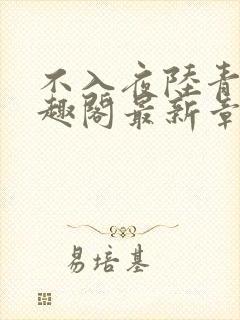 不入夜陸青
趣閣最新章
易培基